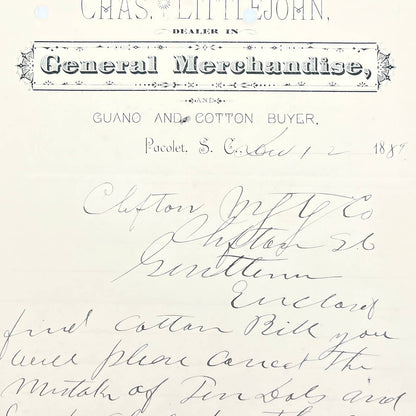 CHAS. LITTLEJOHN,
DEALER IN
General Merchandise,
AND
GUANO AND COTTON BUYER,
Pacolet, S. C., Dec 12 1889
Clifton Mfg Co
Clifton SC
Gentlemen
Enclosed
find Cotton Bill you
will please correct the
Mistake of Ten Dols and